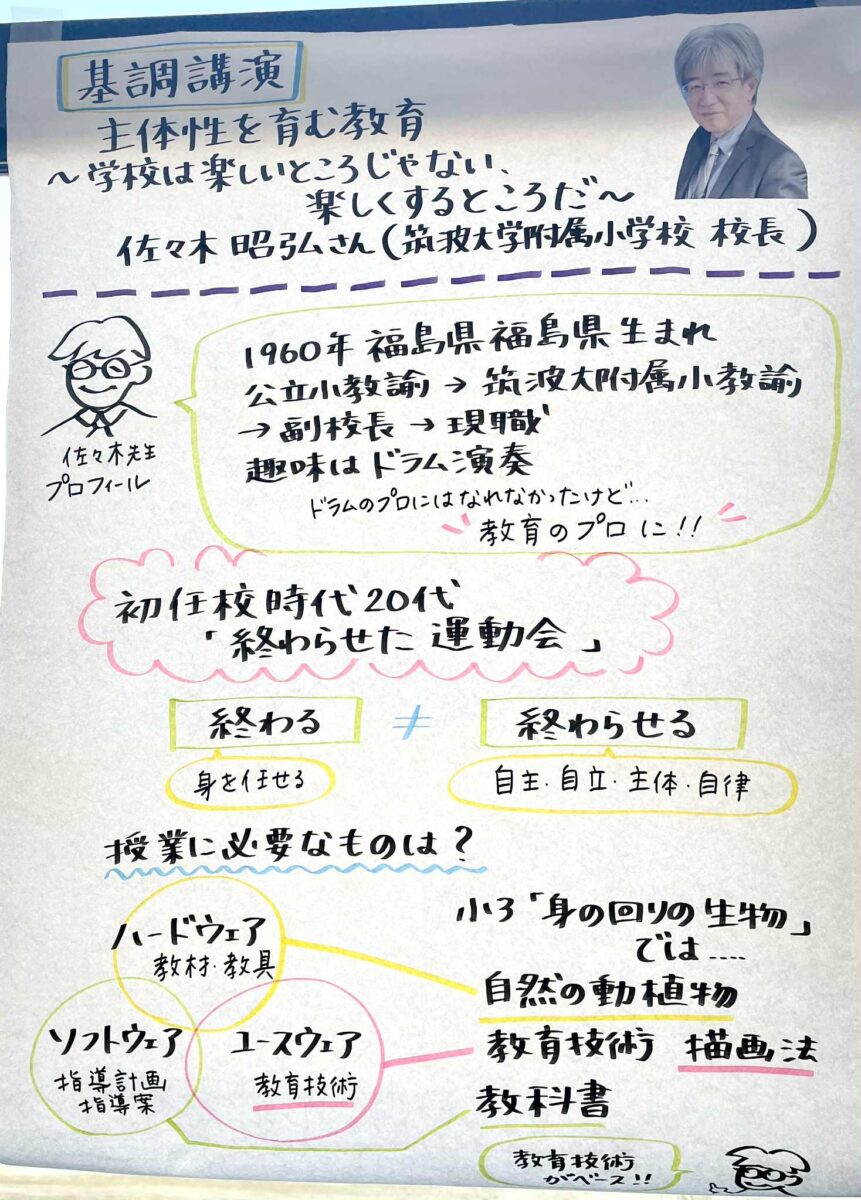 基調講演
主体性を育む教育
～学校は楽しいところじゃない、
楽しくするところだ～
佐々木 昭弘さん(筑波大学附属小学校 校長)
佐々木先生
プロフィール
1960年 福島県福島県生まれ
公立小教諭→筑波大附属小教諭
→副校長→現職
趣味はドラム演奏
ドラムのプロにはなれなかったけど...
教育のプロに!!
初任校時代20代
「終わらせた運動会」
終わる ≠ 終わらせる
身を任せる
自主・自立・主体・自律
授業に必要なものは?
ハードウェア
教材・教具
ソフトウェア
指導計画
指導案
ユースウェア
教育技術
小3「身の回りの生物」
では....
自然の動植物
教育技術 描画法
教科書
教育技術
がベース!!